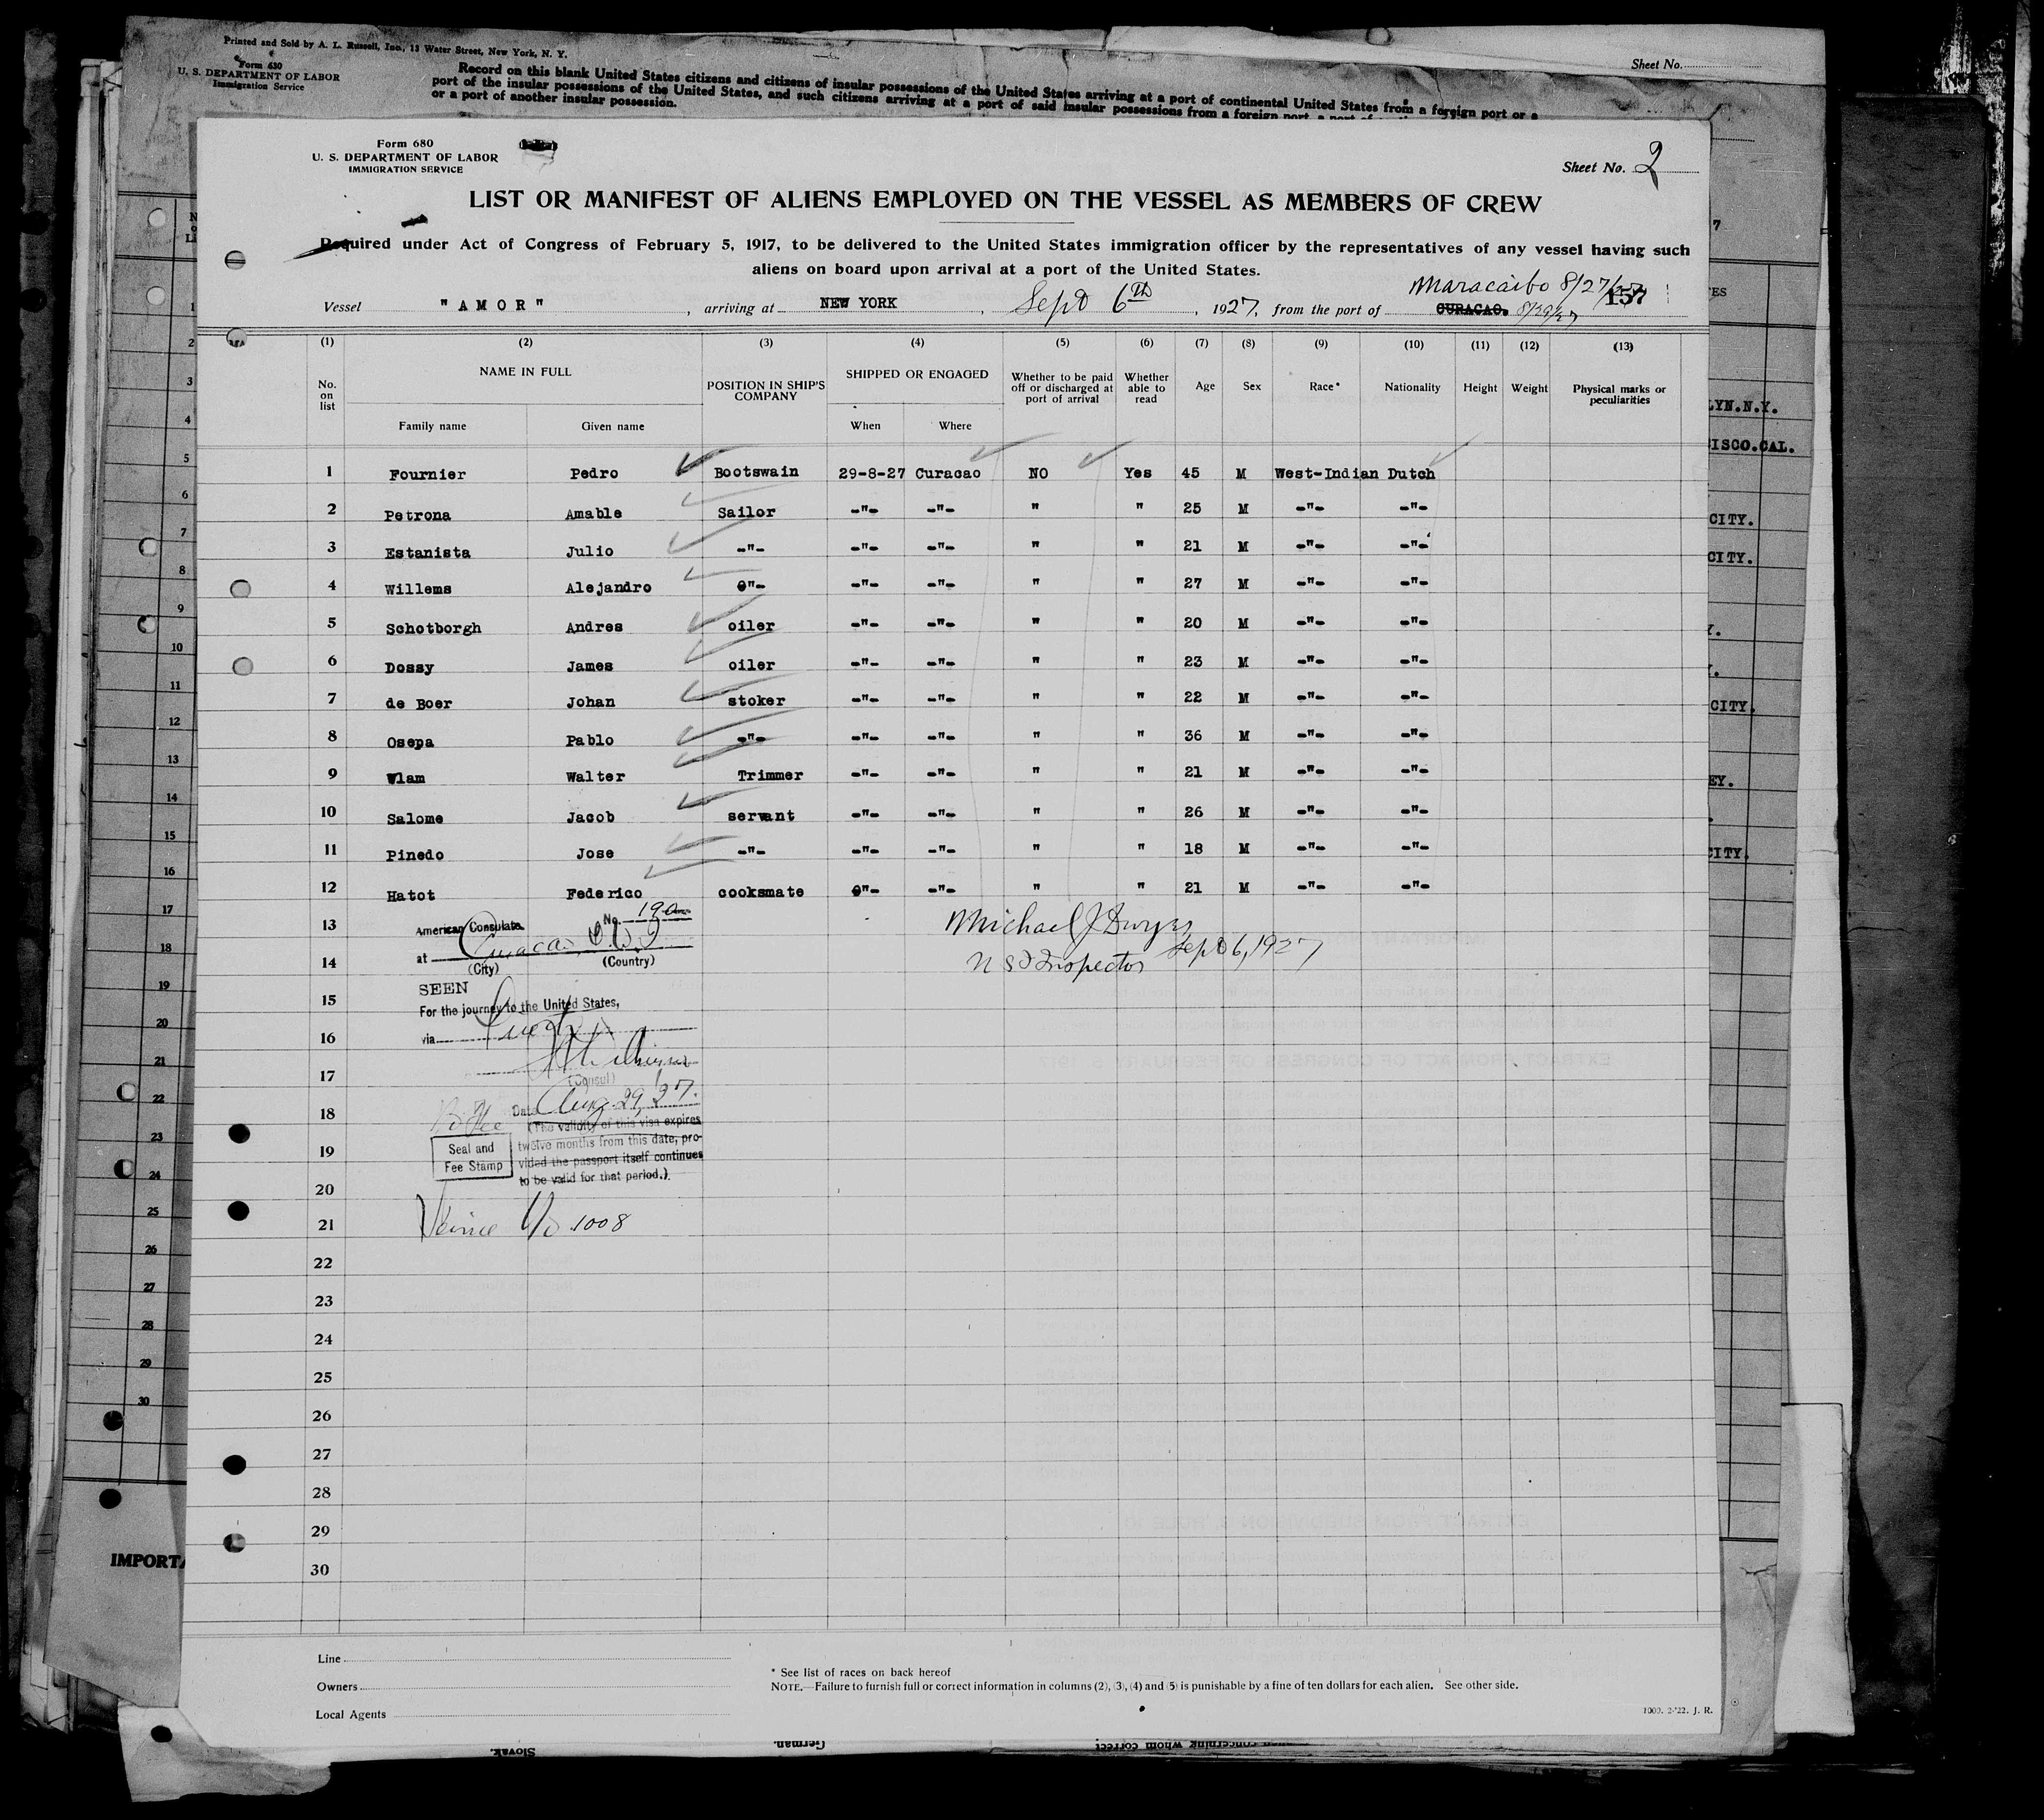 Printed and Sold by A. L. Russell, Inc., 13 Water Street, New York, N. Y.
Form 630
U. S. DEPARTMENT OF LABOR
Immigration Service
Sheet No.
Record on this blank United States citizens and citizens of insular possessions of the United States arriving at a port of continental United States from a foreign port or a
port of the insular possessions of the United States, and such citizens arriving at a port of said insular possessions from a foreign port, a port of
or a port of another insular possession.
Form 680
U. S. DEPARTMENT OF LABOR
IMMIGRATION SERVICE
Sheet No. 2
LIST OR MANIFEST OF ALIENS EMPLOYED ON THE VESSEL AS MEMBERS OF CREW
Required under Act of Congress of February 5, 1917, to be delivered to the United States immigration officer by the representatives of any vessel having such
aliens on board upon arrival at a port of the United States.
Maracaibo 8/27/27 157
Vessel "AMOR", arriving at NEW YORK, Sept 6th, 1927, from the port of CURACAO. 8/29/27
(1) (2) (3) (4) (5) (6) (7) (8) (9) (10) (11) (12) (13)
No. on list NAME IN FULL Family name Given name POSITION IN SHIP'S COMPANY SHIPPED OR ENGAGED When Where Whether to be paid off or discharged at port of arrival Whether able to read Age Sex Race* Nationality Height Weight Physical marks or peculiarities
1 Fournier Pedro Bootswain 29-8-27 Curacao NO Yes 45 M West-Indian Dutch
2 Petrona Amable Sailor -"- -"- " " 25 M -"- -"-
3 Estanista Julio -"- -"- -"- " " 21 M -"- -"-
4 Willems Alejandro 0"- -"- -"- " " 27 M -"- -"-
5 Schotborgh Andres oiler -"- -"- " " 20 M -"- -"-
6 Dossy James oiler -"- -"- " " 23 M -"- -"-
7 de Boer Johan stoker -"- -"- " " 22 M -"- -"-
8 Osepa Pablo -"- -"- -"- " " 36 M -"- -"-
9 Wlam Walter Trimmer -"- -"- " " 21 M -"- -"-
10 Salome Jacob servant -"- -"- " " 26 M -"- -"-
11 Pinedo Jose -"- -"- -"- " " 18 M -"- -"-
12 Hatot Federico cooksmate 0"- -"- " " 21 M -"- -"-
13
14
15
16
17
18
19
20
21
22
23
24
25
26
27
28
29
30
American Consulate No. 190
at Curacao, D.W.I
(City) (Country)
SEEN
For the journey to the United States,
via
(Consul)
Date Aug. 29, 27.
No fee
(The validity of this visa expires
twelve months from this date, pro-
vided the passport itself continues
to be valid for that period.)
Seal and
Fee Stamp
No 1008
Michael J Dwyer
Sept 6, 1927
U S I Inspector
Line
Owners
Local Agents
* See list of races on back hereof
NOTE.—Failure to furnish full or correct information in columns (2), (3), (4) and (5) is punishable by a fine of ten dollars for each alien. See other side.
1000. 2-'22. J. R.
LYN.N.Y.
ISCO.CAL.
CITY.
CITY.
Y.
CITY.
EY.
CITY.
IMPORTA
Slovak.
German.